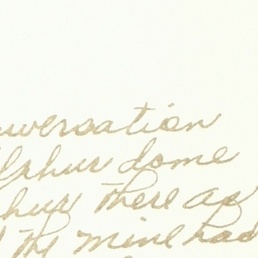 nversation
lphur dome
phur there as
the mine had